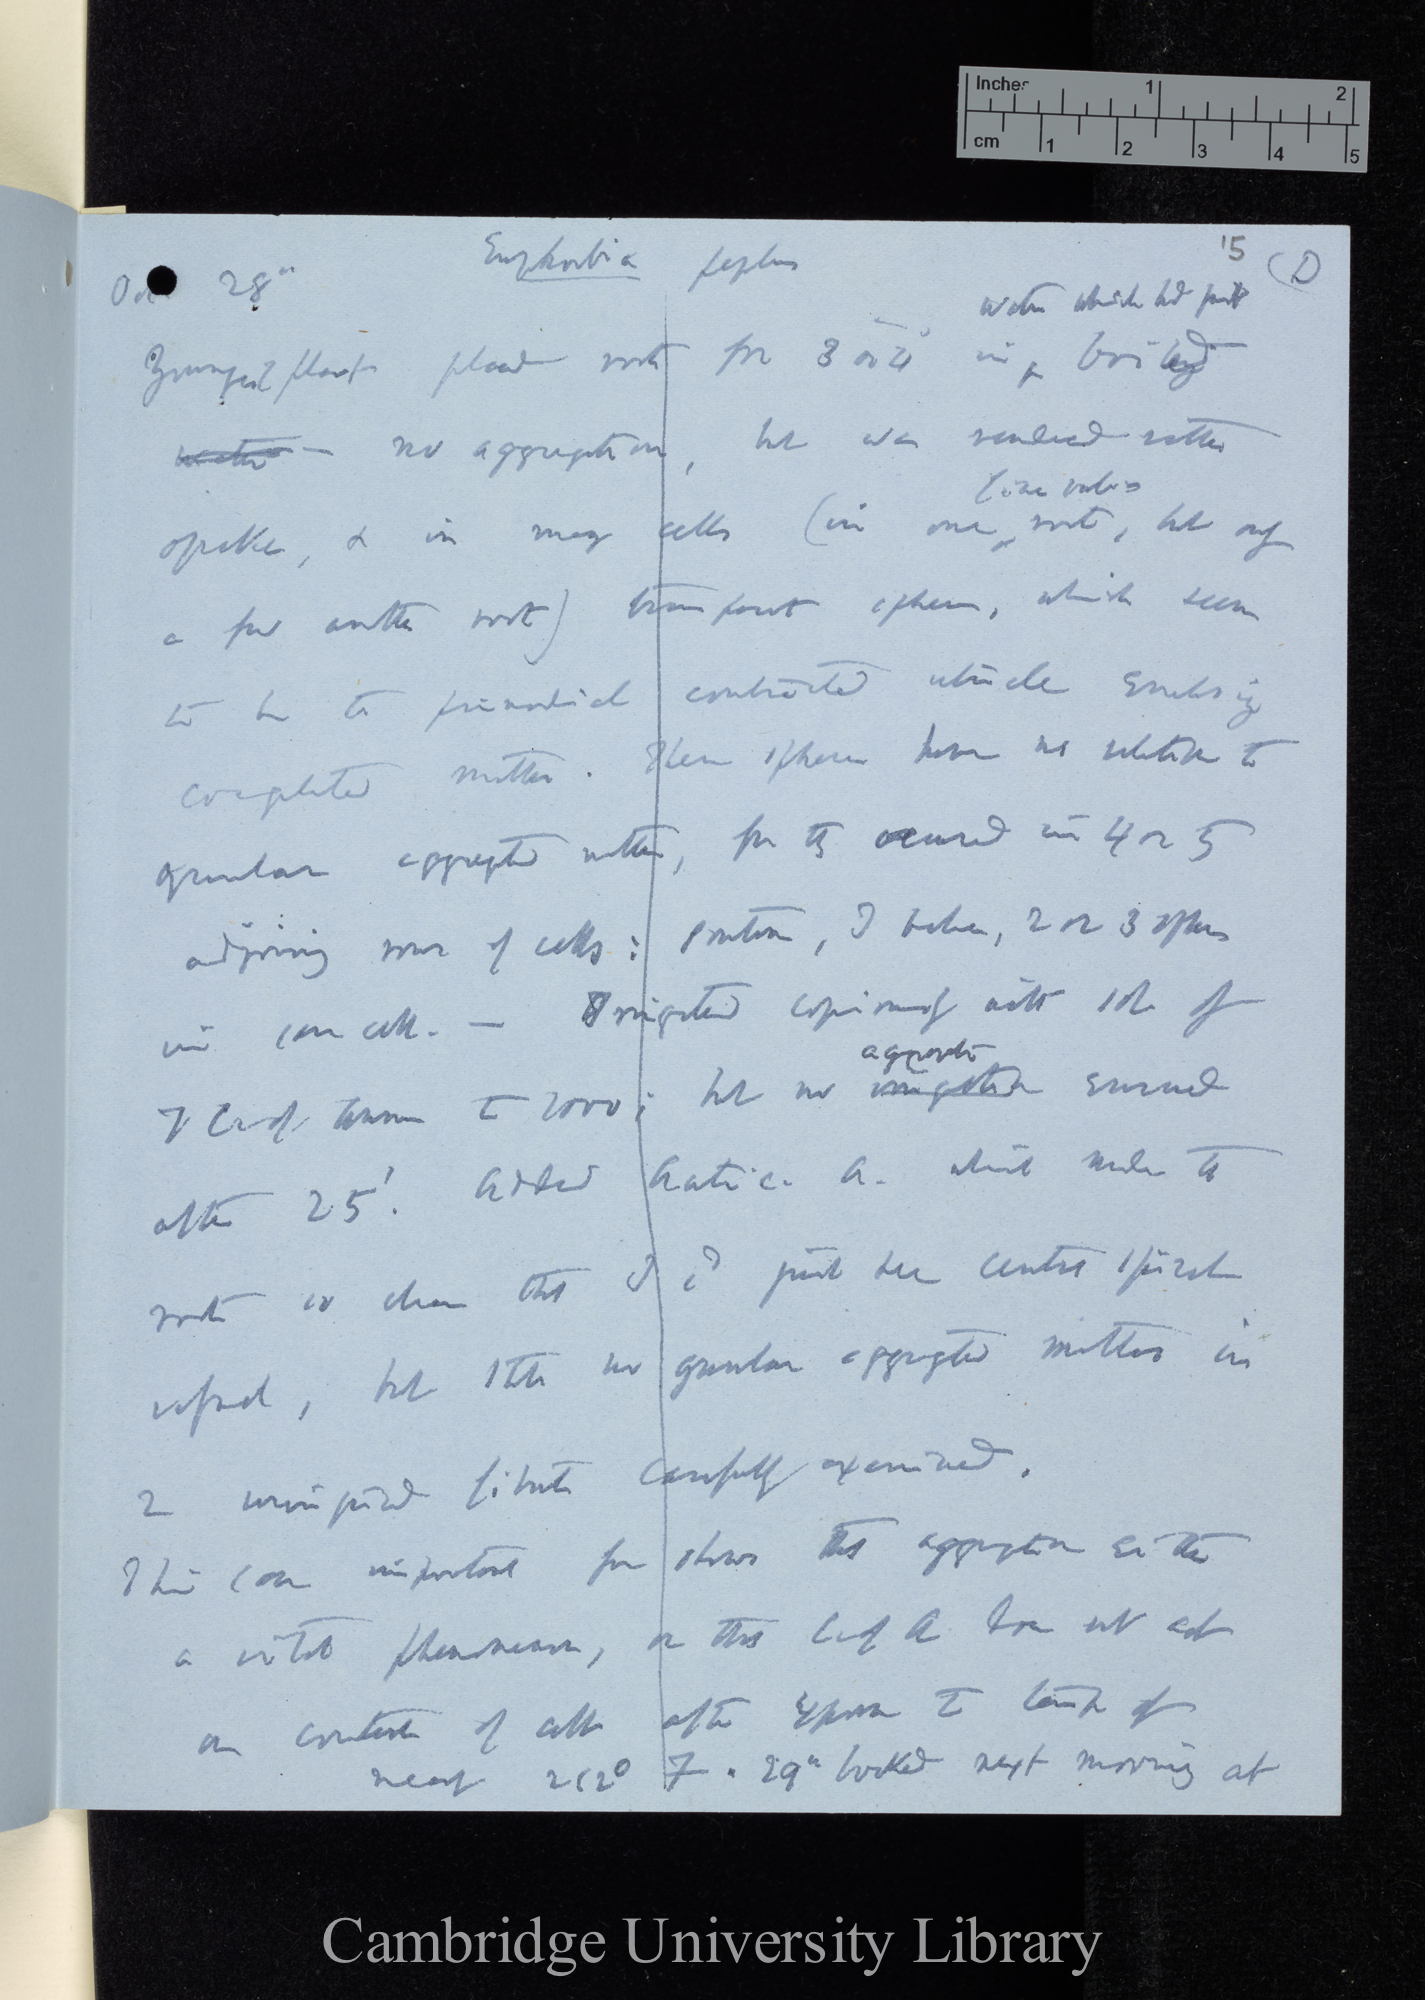 Inches 1 2
cm 1 2 3 4 5
15 (D
Euphorbia peplus
Oct 28"
water which had just
Youngest plant placed root for 3 or 4' in boiled
water — no aggregation, but was rendered rather
fine lobes
opake, & in many cells (in one root, but only
a few another root) transparent spheres, which seem
to be the primordial contracted utricle enclosing
coagulated matter. These spheres have no relation to
granular aggregated matter, for they occurred in 4 or 5
adjoining rows of cells: sometimes, I believe, 2 or 3 spheres
in one cell. — Irrigated copiously with sol. of
aggregation
7 C. of Ammon to 1000; but no irrigation ensued
after 25'. Added Acetic. A. which made the
roots so clear that I cd just see central spiral
vessel, but still no granular aggregated matter in
2 irrigated fibrets carefully examined.
This case important for shows that aggregation either
a vital phenomenon, or that C. of A. does not act
on contents of cells after exposure to temp of
nearly 212° F. 29" looked next morning at
Cambridge University Library